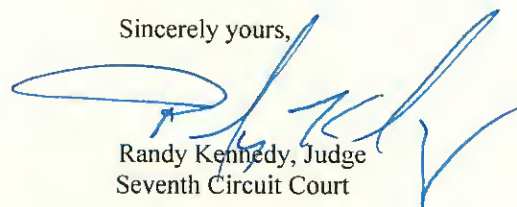 Sincerely yours,
Randy Kennedy, Judge
Seventh Circuit Court